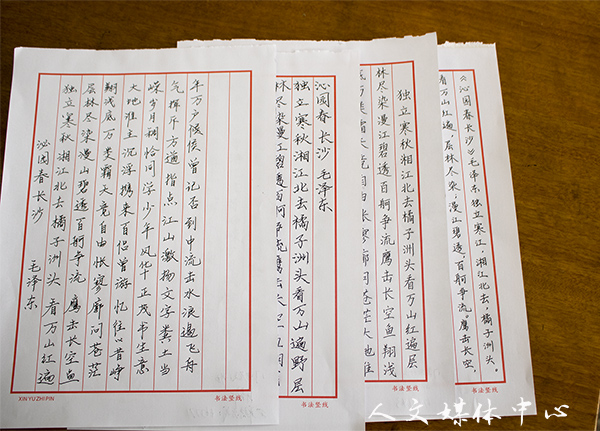 沁园春长沙 毛泽东
独立寒秋湘江北去橘子洲头看万山红遍
层林尽染漫山碧透百舸争流鹰击长空鱼
翔浅底万类霜天竟自由怅寥廓问苍茫
大地谁主沉浮携来百侣曾游忆往昔峥
嵘岁月稠恰同学少年风华正茂书生意
气挥斥方遒指点江山激扬文字粪土当
年万户候曾记否到中流击水浪遏飞舟
XIN YU ZHI PIN
书法竖线
沁园春 长沙 毛泽东
独立寒秋湘江北去橘子洲头看万山遍野层
林尽染漫江碧透百舸争流鹰击长空
书法竖线
独立寒秋湘江北去橘子洲头看万山红遍层
林尽染漫江碧透百舸争流鹰击长空鱼翔浅
底万类霜天竞自由怅寥廓问苍茫大地谁
书法竖线
《沁园春长沙》毛泽东 独立寒江，湘江北去，橘子洲头。
看万山红遍，层林尽染，漫江碧透，百舸争流。鹰击长空，
书法竖线
人文媒体中心